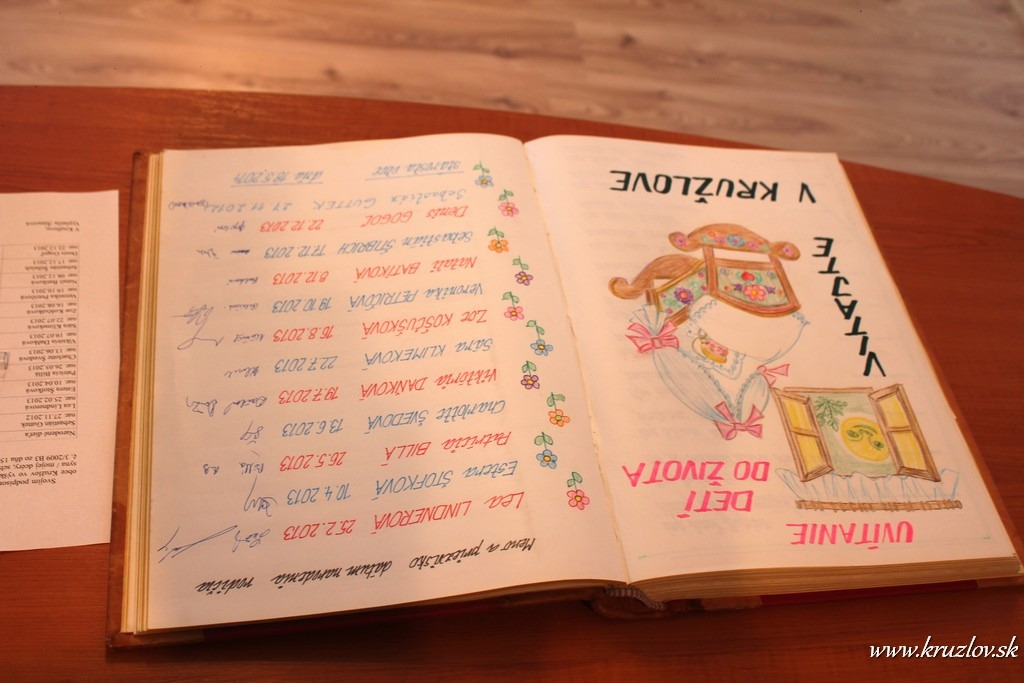 UVÍTANIE
DETÍ
DO ŽIVOTA
VITAJTE
V KRUŽLOVE
Meno a priezvisko dátum narodenia rodičia
Lea LINDNEROVÁ 25.2.2013
Estera ŠTOFKOVÁ 10.4.2013
Patrícia BILLÁ 26.5.2013
Charlotte ŠVEDOVÁ 13.6.2013
Viktória DAŇKOVÁ 19.7.2013
Sára KLIMEKOVÁ 22.7.2013
Zoe KOŠČUŠKOVÁ 16.8.2013
Veronika PETRIČOVÁ 19.10.2013
Natali BATIKOVÁ 8.12.2013
Sebastián ŠTIBRICH 17.12.2013
Denis GOGOĽ 22.12.2013
Sebastián GUTTEK 27.11.2012
starosta obce dňa 18.5.2014
Svojím podpisom
obce Kružlov vo výške
syna / mojej dcéry, sch
č.3/2009 B3 zo dňa 15
Narodené dieťa
Sebastián Guttek
nar. 27.11.2012
Lea Lindnerová
nar. 25.02.2013
Estera Štofková
nar. 10.04.2013
Patrícia Billá
nar. 26.05.2013
Charlotte Švedová
nar. 13.06.2013
Viktória Daňková
nar. 19.07.2013
Sára Klimeková
nar. 22.07.2013
Zoe Koščušková
nar. 16.08.2013
Veronika Petričová
nar. 19.10.2013
Natali Batiková
nar. 08.12.2013
Sebastián Štibrich
nar. 17.12.2013
Denis Gogoľ
nar. 22.12.2013
V Kružlove,
www.kruzlov.sk